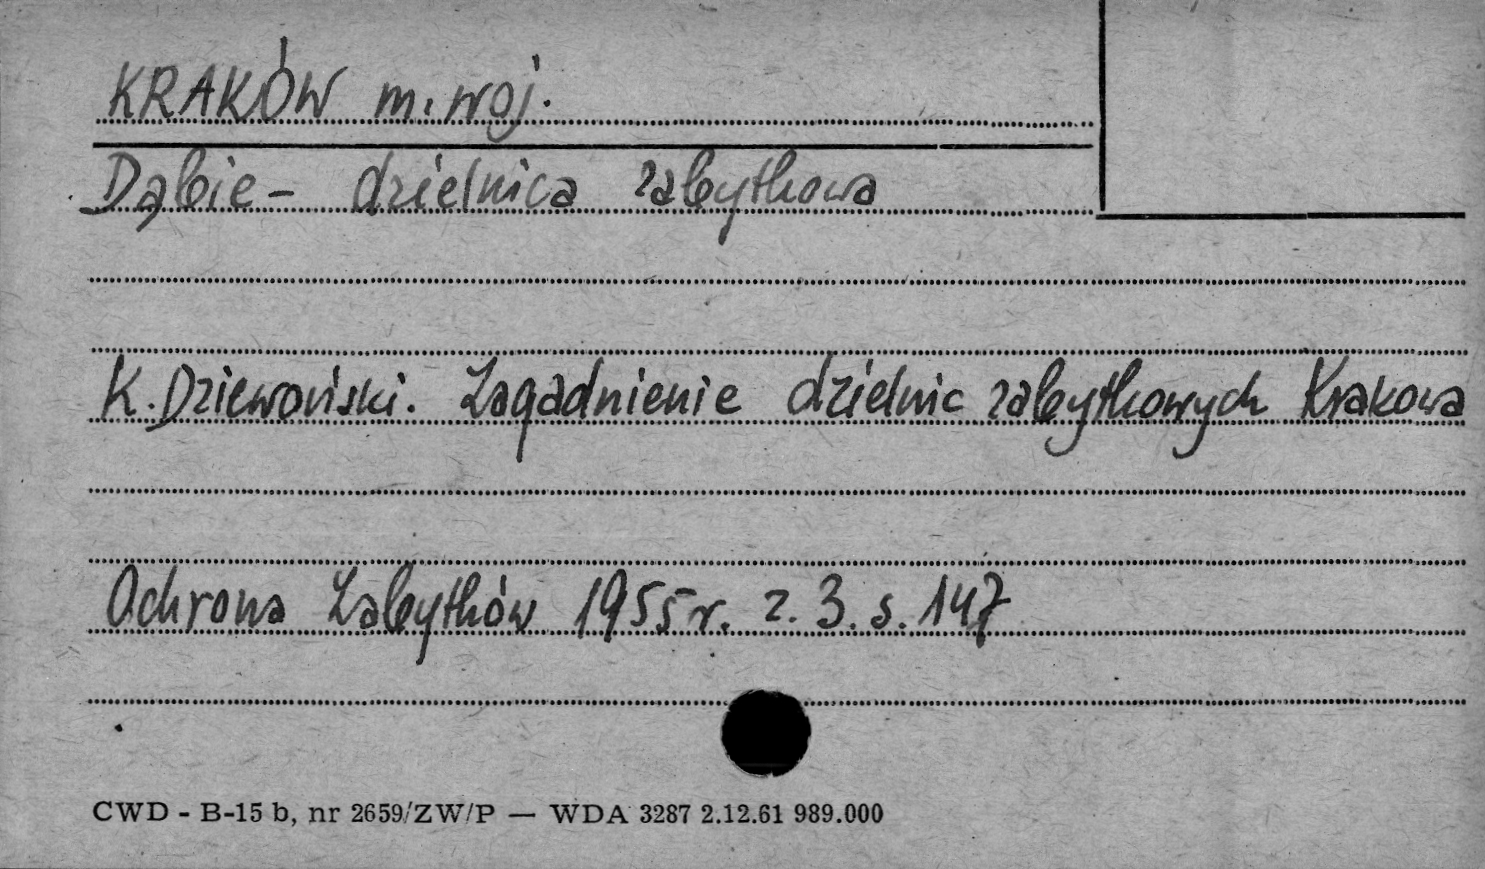 KRAKÓW m. woj.
Dąbie - dzielnica zabytkowa
K. Dziewoński. Zagadnienie dzielnic zabytkowych Krakowa
Ochrona Zabytków 1955 r. z. 3. s. 147
CWD - B-15 b, nr 2659/ZW/P — WDA 3287 2.12.61 989.000